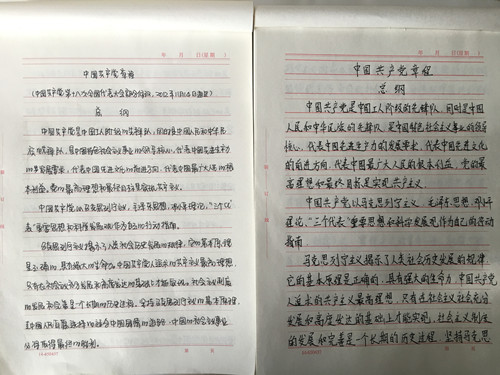 年 月 日(星期 )
中国共产党章程
(中国共产党第十八次全国代表大会部分修改，2012年11月14日通过)
总纲
中国共产党是中国工人阶级的先锋队，同时是中国人民和中华民
族的先锋队，是中国特色社会主义事业的领导核心，代表中国先进生产力
的发展要求，代表中国先进文化的前进方向，代表中国最广大人民的根
本利益。党的最高理想和最终目标是实现共产主义。
中国共产党以马克思列宁主义、毛泽东思想、邓小平理论、“三个代
表”重要思想和科学发展观作为自己的行动指南。
马克思列宁主义揭示了人类社会历史发展的规律，它的基本原理
是正确的，具有强大的生命力。中国共产党人追求的共产主义最高理想，
只有在社会主义社会充分发展和高度发达的基础上才能实现。社会主义制度
的发展和完善是一个长期的历史过程。坚持马克思列宁主义的基本原理，
走中国人民自愿选择的适合中国国情的道路，中国的社会主义事业
必将取得最终的胜利。
年 月 日(星期 )
中国共产党章程
总纲
中国共产党是中国工人阶级的先锋队，同时是中国
人民和中华民族的先锋队，是中国特色社会主义事业的领导
核心，代表中国先进生产力的发展要求，代表中国先进文化
的前进方向，代表中国最广大人民的根本利益。党的最
高理想和最终目标是实现共产主义。
中国共产党以马克思列宁主义、毛泽东思想、邓小平
理论、“三个代表”重要思想和科学发展观作为自己的行动
指南。
马克思列宁主义揭示了人类社会历史发展的规律，
它的基本原理是正确的，具有强大的生命力。中国共产党
人追求的共产主义最高理想，只有在社会主义社会充分
发展和高度发达的基础上才能实现。社会主义制度
的发展和完善是一个长期的历史过程。坚持马克思